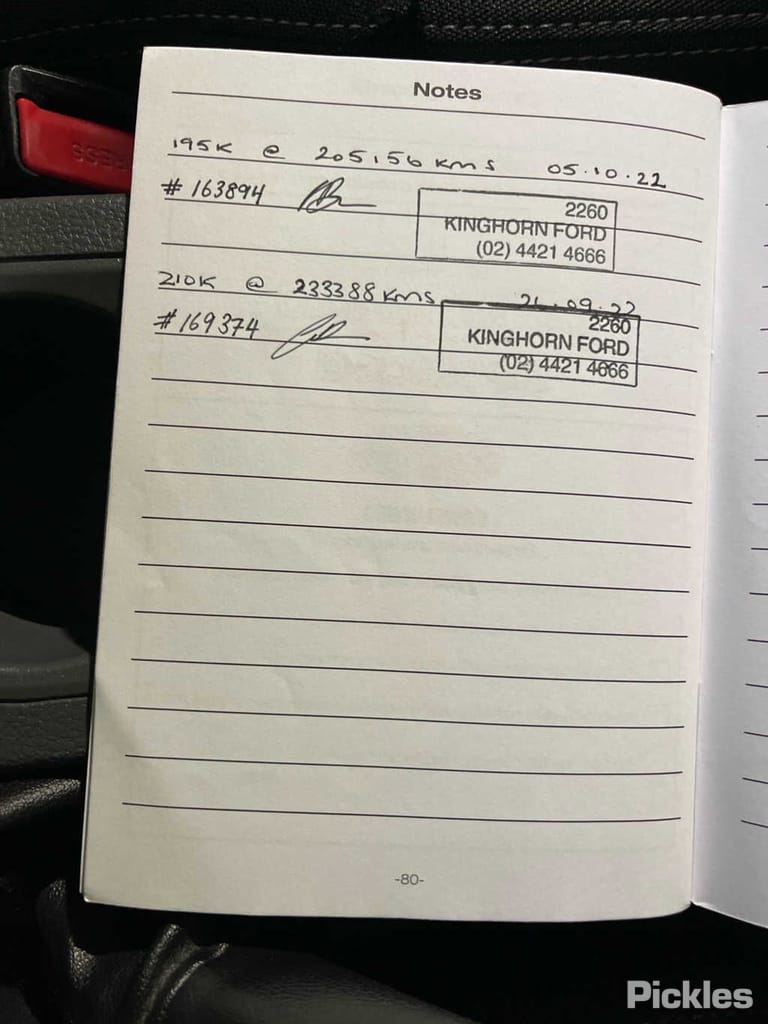 Notes
195K @ 205,156 KMS 05.10.22
# 163894
2260
KINGHORN FORD
(02) 4421 4666
210K @ 233388 KMS
# 169374
2260
KINGHORN FORD
(02) 4421 4666
-80-
Pickles